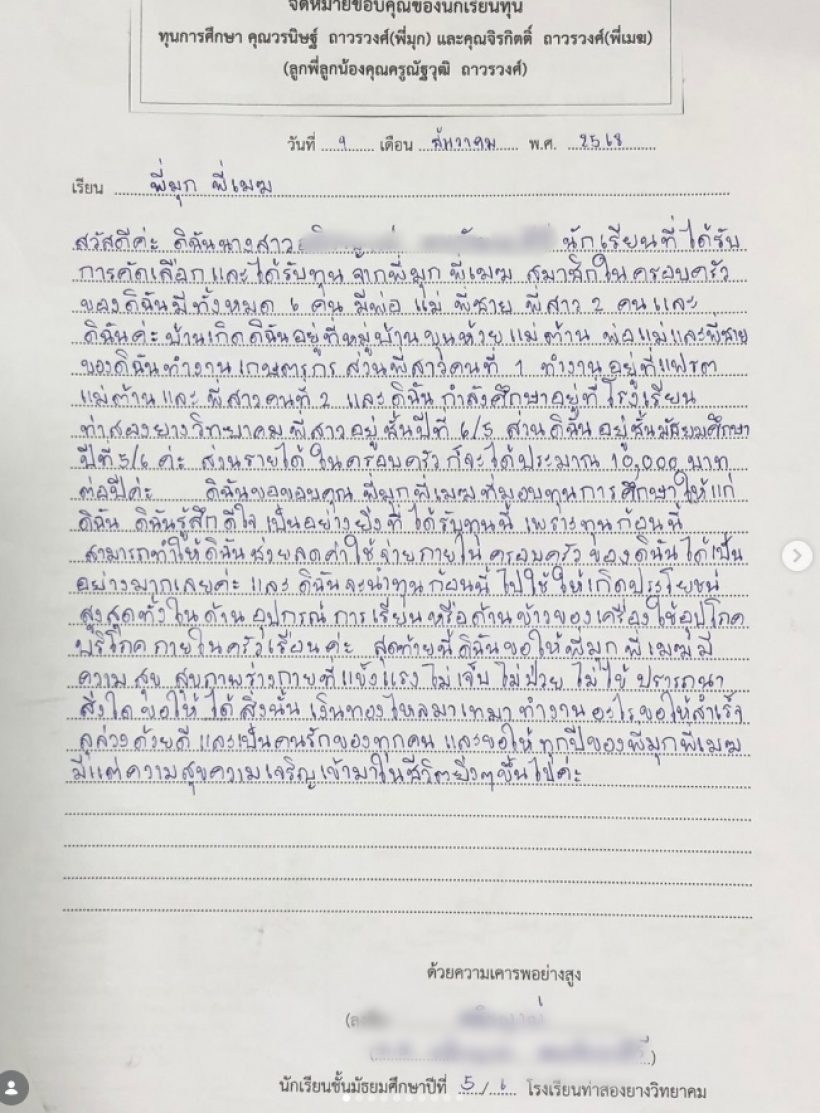 จดหมายขอบคุณของนักเรียนทุน
ทุนการศึกษา คุณวรนิษฐ์ ถาวรวงศ์(พี่มุก) และคุณจิรกิตติ์ ถาวรวงศ์(พี่เมฆ)
(ลูกพี่ลูกน้องคุณครูณัฐวุฒิ ถาวรวงศ์)
วันที่ 9 เดือน ธันวาคม พ.ศ. 2568
เรียน พี่มุก พี่เมฆ
สวัสดีค่ะ ดิฉันนางสาว นักเรียนที่ได้รับ
การคัดเลือกและได้รับทุน จากพี่มุก พี่เมฆ สมาชิกในครอบครัว
ของดิฉันมีทั้งหมด 6 คน มีพ่อ แม่ พี่ชาย พี่สาว 2 คนและ
ดิฉันค่ะ บ้านเกิดดิฉันอยู่ที่หมู่บ้านขุนห้วยแม่ต้าน พ่อแม่และพี่ชาย
ของดิฉันทำงานเกษตรกร ส่วนพี่สาวคนที่ 1 ทำงานอยู่ที่แฟรต
แม่ต้านและ พี่สาวคนที่ 2 และดิฉัน กำลังศึกษาอยู่ที่โรงเรียน
ท่าสองยางวิทยาคม พี่สาวอยู่ชั้นปีที่ 6/5 ส่วนดิฉันอยู่ชั้นมัธยมศึกษา
ปีที่ 5/6 ค่ะ ส่วนรายได้ในครอบครัวก็จะได้ประมาณ 10,000 บาท
ต่อปีค่ะ ดิฉันขอขอบคุณ พี่มุกพี่เมฆที่มอบทุนการศึกษาให้แก่
ดิฉัน ดิฉันรู้สึกดีใจเป็นอย่างยิ่งที่ได้รับทุนนี้ เพราะทุนก้อนนี้
สามารถทำให้ดิฉันช่วยลดค่าใช้จ่ายภายใน ครอบครัวของดิฉันได้เป็น
อย่างมากเลยค่ะ และ ดิฉันจะนำทุนก้อนนี้ไปใช้ให้เกิดประโยชน์
สูงสุดทั้งในด้านอุปกรณ์การเรียนหรือด้านข้าวของเครื่องใช้อุปโภค
บริโภคภายในครัวเรือนค่ะ สุดท้ายนี้ดิฉันขอให้พี่มุก พี่เมฆมี
ความสุข สุขภาพร่างกายที่แข็งแรงไม่เจ็บไม่ป่วยไม่ไข้ ปรารถนา
สิ่งใดขอให้ได้สิ่งนั้น เงินทองไหลมาเทมา ทำงานอะไรขอให้สำเร็จ
ลุล่วงด้วยดี และเป็นคนรักของทุกคน และขอให้ทุกปีของพี่มุกพี่เมฆ
มีแต่ความสุขความเจริญเข้ามาในชีวิตยิ่งๆขึ้นไปค่ะ
ด้วยความเคารพอย่างสูง
นักเรียนชั้นมัธยมศึกษาปีที่ 5/6 โรงเรียนท่าสองยางวิทยาคม